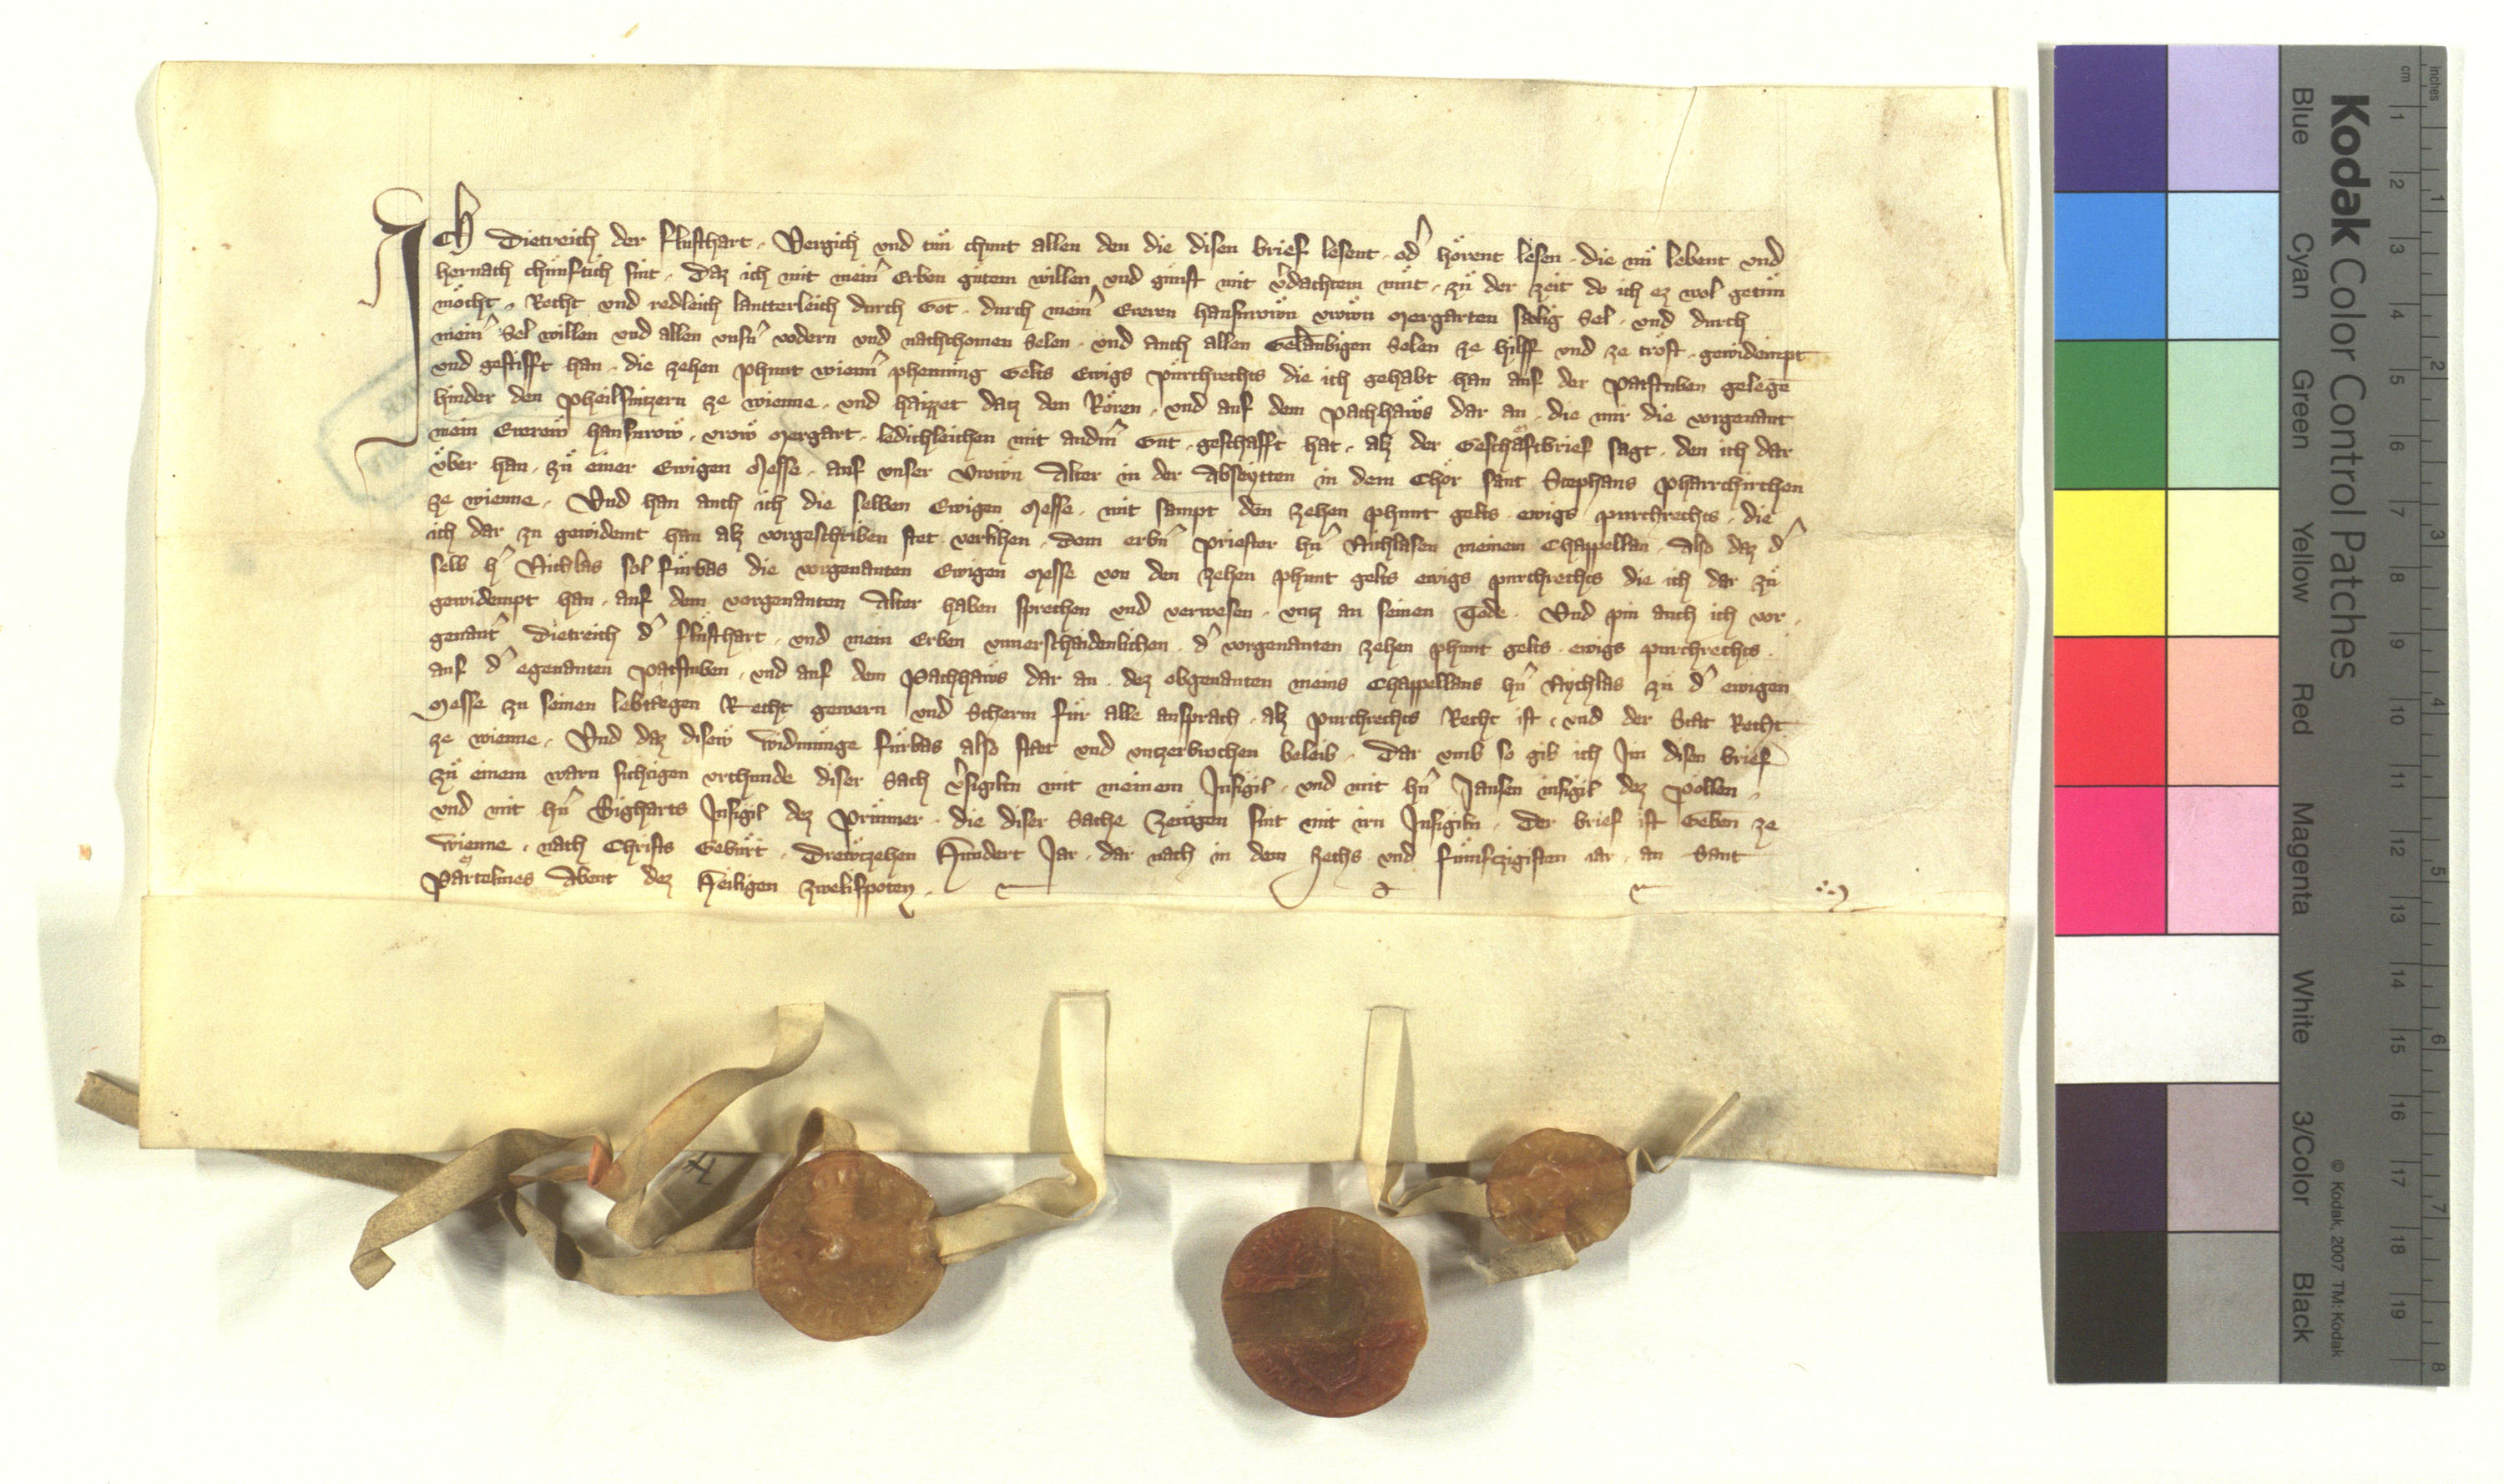 Ich Dietreich der Flusthart. Vergich vnd tuͤn chunt allen den die disen brief lesent. odˀ hoͤrent lesen. die nuͤ lebent vnd
hernach chuͤnftich sint. Daz ich mit meinˀ Erben guͤtem willen vnd gunst mit vˀdachtem muͤt. zuͤ der zeit do ich ez wol getuͤn
moͤcht. Recht vnd redleich lautterleich durch Got. durch meinˀ Eeren hausurowͤn vrowͤn Mergarten saͤlig Sel. vnd durch
meinˀ Sel willen vnd allen vnsˀn vodern vnd nachchomen Selen. vnd auch allen Gelaubigen Selen ze hilff vnd ze trost. gewidempt
vnd gestifft han. die zehen phunt wiennˀ phenning Gelts Ewigs purchrechts die ich gehabt han auf der Patstuben gelegē
hinder den Pheilsnitzern ze wienne. vnd haizzet datz den Roͤren. vnd auf dem Pachhaws dar an. die mir die vorgenant
mein Ererew hausurow. vrow Mergart. ledichleichen mit andˀm Gut. geschafft hat. alz der Geschaͤftbrief sagt. den ich dar
vͤber han. zuͤ einer Ewigen Messe. auf vnser Vrowͤn Alter in der Abseytten in dem Choͤr sant Stephans Pharrchirchen
ze wienne. Vnd han auch ich die selben Ewigen Messe. mit sampt den zehen phunt gelts ewigs purchrechts. die
ich dar zu gewidemt han alz vorgeschriben stet verlihen. dem erbˀn Priester hˀn Nichlasen meinem Chappellan. Also daz dˀ
selb hˀ Nichlas sol fuͤrbas die vorgenanten Ewigen Messe von den zehen phunt gelts ewigs purchrechts die ich dar zuͤ
gewidempt han. auf dem vorgenanten Alter haben sprechen vnd verwesen. vntz an seinen Tode. Vnd pin auch ich vor
genantˀ Dietreich dˀ Flusthart. vnd mein Erben vnuerschaidenlichen. dˀ vorgenanten zehen phunt gelts. ewigs purchrechts.
auf dˀ egenanten Patstuben. vnd auf dem Pachhaws dar an. dez obgenanten meins Chappellans hˀn Nychlas zu dˀ ewigen
Messe zu seinen lebtaegen Recht gewern vnd Scherm fuͤr alle ansprach. alz purchrechts Recht ist. vnd der Stat Recht
ze wienne. Vnd daz disew widmunge fuͤrbas also staet vnd vntzerbrochen beleib. Dar vmb so gib ich Im disen brief
zuͤ einem warn sichtigen vrchunde diser Sach vˀsigiltn mit meinem Insigil. vnd mit hˀn Jansen insigil dez Pollen.
vnd mit hˀn Sigharts Insigil dez Pruͤnner. die diser Sache Zeugen sint mit irn Insigiln. Der brief ist Geben ze
wienne. nach Christs Geburt. Drewtzehen Hundert Jar. dar nach in dem Sechs vnd Fuͤmftzigisten iar. an Sant
Partelmes Abent dez Heiligen zwelifpoten.
Kodak Color Control Patches
Blue Cyan Green Yellow Red Magenta White 3/Color Black
© Kodak, 2007 TM: Kodak
cm 1 2 3 4 5 6 7 8 9 10 11 12 13 14 15 16 17 18 19
Inches 1 2 3 4 5 6 7 8